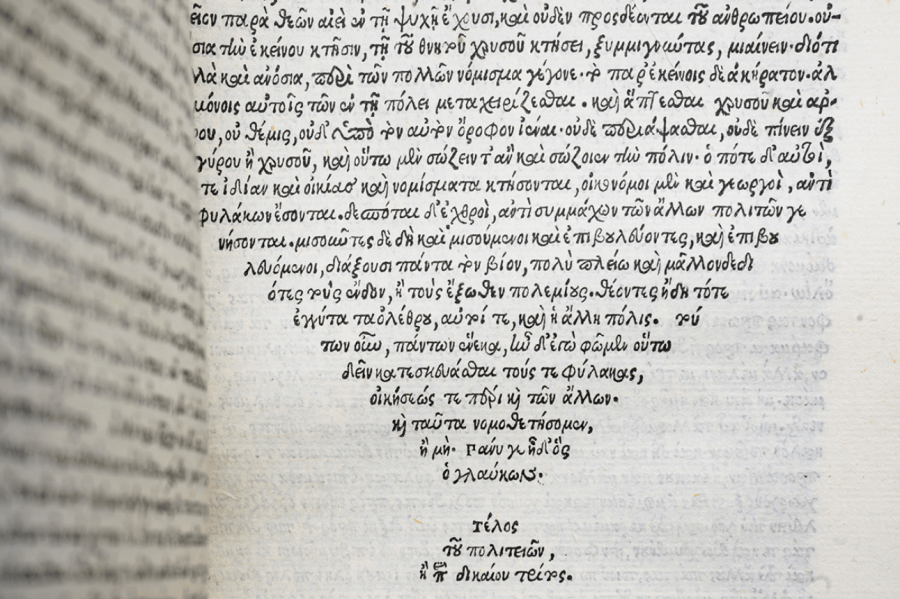 εῖον παρὰ θεῶν αἰεὶ ἐν τῇ ψυχῇ ἔχουσι, καὶ οὐδὲν προσδέονται τοῦ ἀνθρωπείου. οὐ-
σια τὴν ἐκείνου κτῆσιν, τῇ τοῦ θνητοῦ χρυσοῦ κτήσει, ξυμμιγνύωτας, μιαίνειν· διότι
λὰ καὶ ἀνόσια, περὶ τῶν πολλῶν νόμισμα γέγονε· τὸ παρ' ἐκείνοις δὲ ἀκήρατον· ἀλ
μόνοις αὐτοῖς τῶν ἐν τῇ πόλει μεταχειρίζεσθαι . καὶ ἅπτεσθαι χρυσοῦ καὶ ἀρ-
ρου, οὐ θέμις, οὐδ' ὑπὸ τὸν αὐτὸν ὄροφον ἰέναι· οὐδὲ περιάψασθαι, οὐδὲ πίνειν ἐξ
γύρου ἢ χρυσοῦ, καὶ οὕτω μὲν σώζειν τ' ἂν καὶ σώζοιεν τὴν πόλιν· ὁ πότε δ' αὐτοὶ,
τε ἰδίαν καὶ οἰκίας καὶ νομίσματα κτήσονται, οἰκονόμοι μὲν καὶ γεωργοὶ, ἀντὶ
φυλάκων ἔσονται. δεσπόται δ' ἐχθροὶ, ἀντὶ συμμάχων τῶν ἄλλων πολιτῶν γε
νήσονται. μισοῦντες δὲ δὴ καὶ μισούμενοι καὶ ἐπιβουλεύοντες, καὶ ἐπιβου
λευόμενοι, διάξουσι πάντα τὸν βίον, πολὺ πλείω καὶ μᾶλλον δεδι
ότες τοὺς ἔνδον, ἢ τοὺς ἔξωθεν πολεμίους. θέοντες ἤδη τότε
ἐγγύτατα ὀλέθρου, αὐτοί τε, καὶ ἡ ἄλλη πόλις. τού
των οὖν, πάντων ἕνεκα, ἦν δ' ἐγὼ φῶμεν οὕτω
δεῖν κατεσκευάσθαι τοὺς τε φύλακας,
οἰκήσεώς τε πέρι καὶ τῶν ἄλλων.
καὶ ταῦτα νομοθετήσομεν,
ἢ μή· Πάνυ γε ἦ δ' ὃς
ὁ γλαύκων.
Τέλος
τοῦ πολιτειῶν,
ἢ περὶ δικαίου τρίτου.